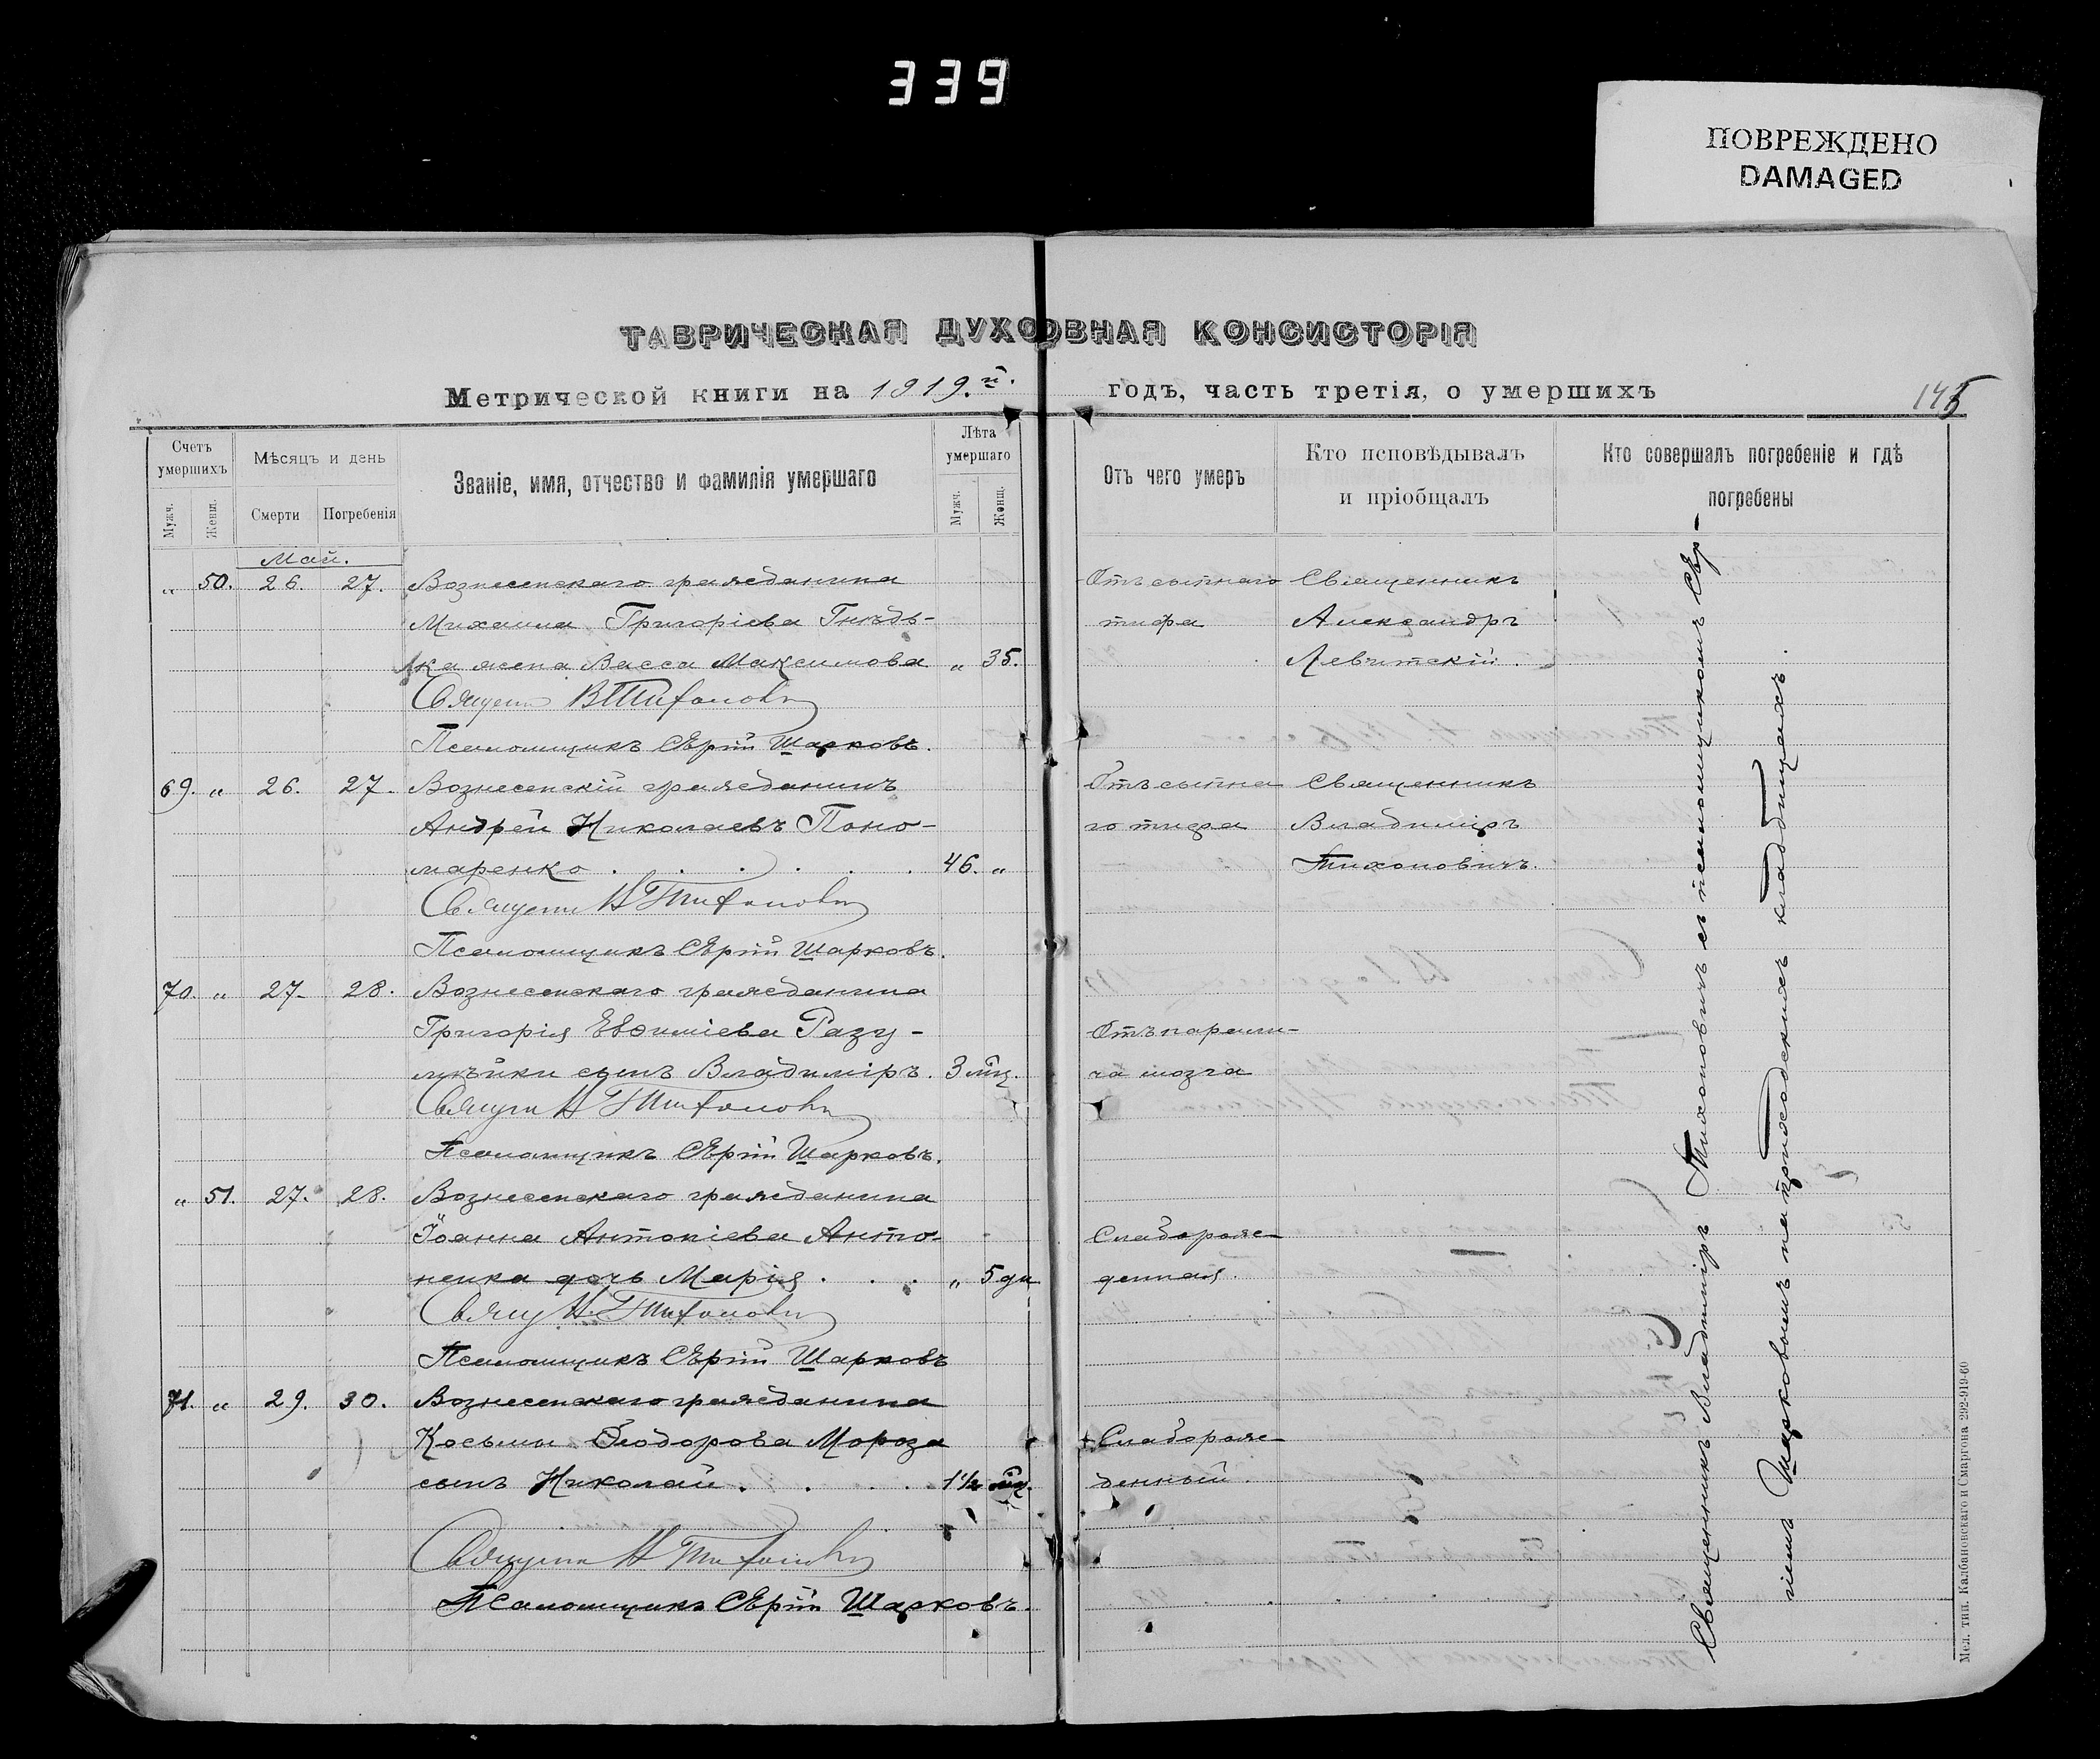 339
ПОВРЕЖДЕНО
DAMAGED
ТАВРИЧЕСКАЯ ДУХОВНАЯ КОНСИСТОРІЯ
Метрической книги на 1919.й. годъ, часть третія, о умершихъ
145
Счетъ умершихъ
Мужч.
Женщ.
Мѣсяцъ и день
Смерти
Погребенія
Званіе, имя, отчество и фамилія умершаго
Лѣта умершаго
Мужч.
Женщ.
Отъ чего умеръ
Кто исповѣдывалъ
и пріобщалъ
Кто совершалъ погребеніе и гдѣ
погребены
Май.
„ 50. 26. 27. Вознесенскаго гражданина Отъ сыпнаго Священникъ
Михаила Григоріева Гнѣдь- тифа Александръ
ка жена Васса Максимова „ 35. Левитскій.
Псаломщикъ Сергій Шарковъ.
69. „ 26. 27. Вознесенскій гражданинъ Отъ сыпна Священникъ
Андрей Николаевъ Поно- го тифа Владиміръ
маренко . . . . . 46. „ Тихоновичъ.
Псаломщикъ Сергій Шарковъ.
70. „ 27. 28. Вознесенскаго гражданина
Григорія Евфиміева Разу- Отъ парали-
мѣйки сынъ Владиміръ. 3 мц. ча мозга
Псаломщикъ Сергій Шарковъ.
„ 51. 27. 28. Вознесенскаго гражданина
Іоанна Антоніева Анто- Слаборож-
ненка дочь Марія . . . „ 5 дн денная.
Псаломщикъ Сергій Шарковъ
71. „ 29. 30. Вознесенскаго гражданина
Косьмы Ѳеодорова Мороза Слаборож-
сынъ Николай. . . . . 1½ мц. денный.
Псаломщикъ Сергій Шарковъ.
Священникъ Владиміръ Тихоновичъ съ псаломщикомъ Сер-
гіемъ Шарковымъ на приходскихъ кладбищахъ.
Мел. тип. Калбановскаго и Смаргона 292-919-60